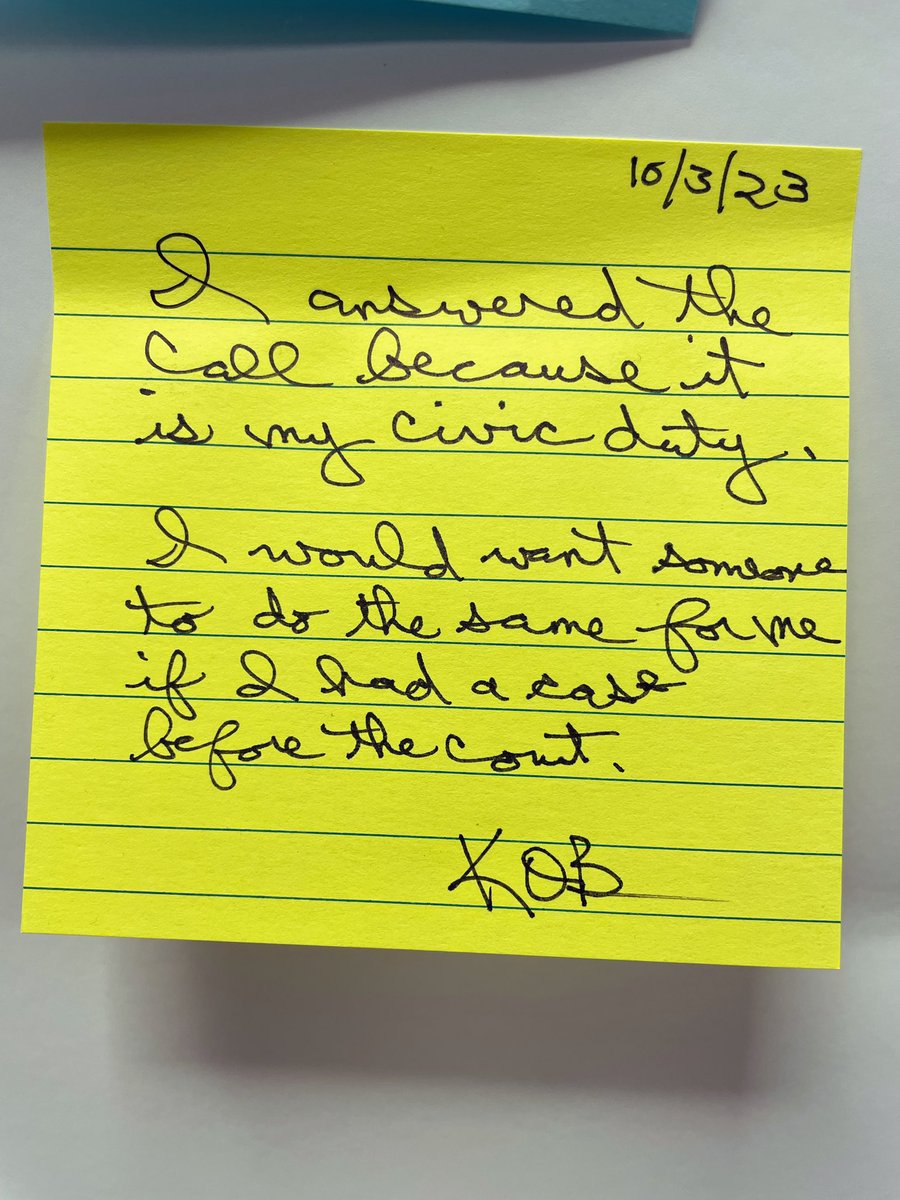 10/3/23
I answered the
Call because it
is my civic duty.
I would want someone
to do the same for me
if I had a case
before the court.
KOB